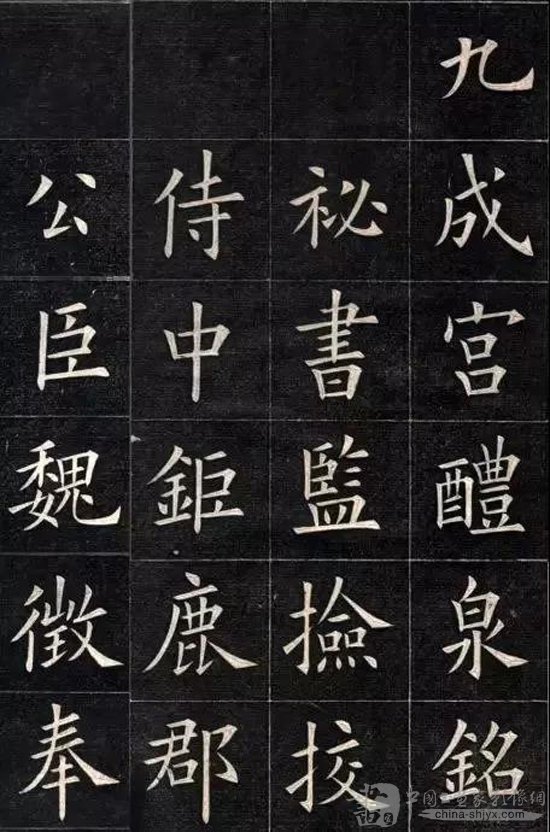 九成宮醴泉銘
祕書監撿挍
侍中鉅鹿郡
公臣魏徵奉
中国书画家影像網
china-shjyx.com